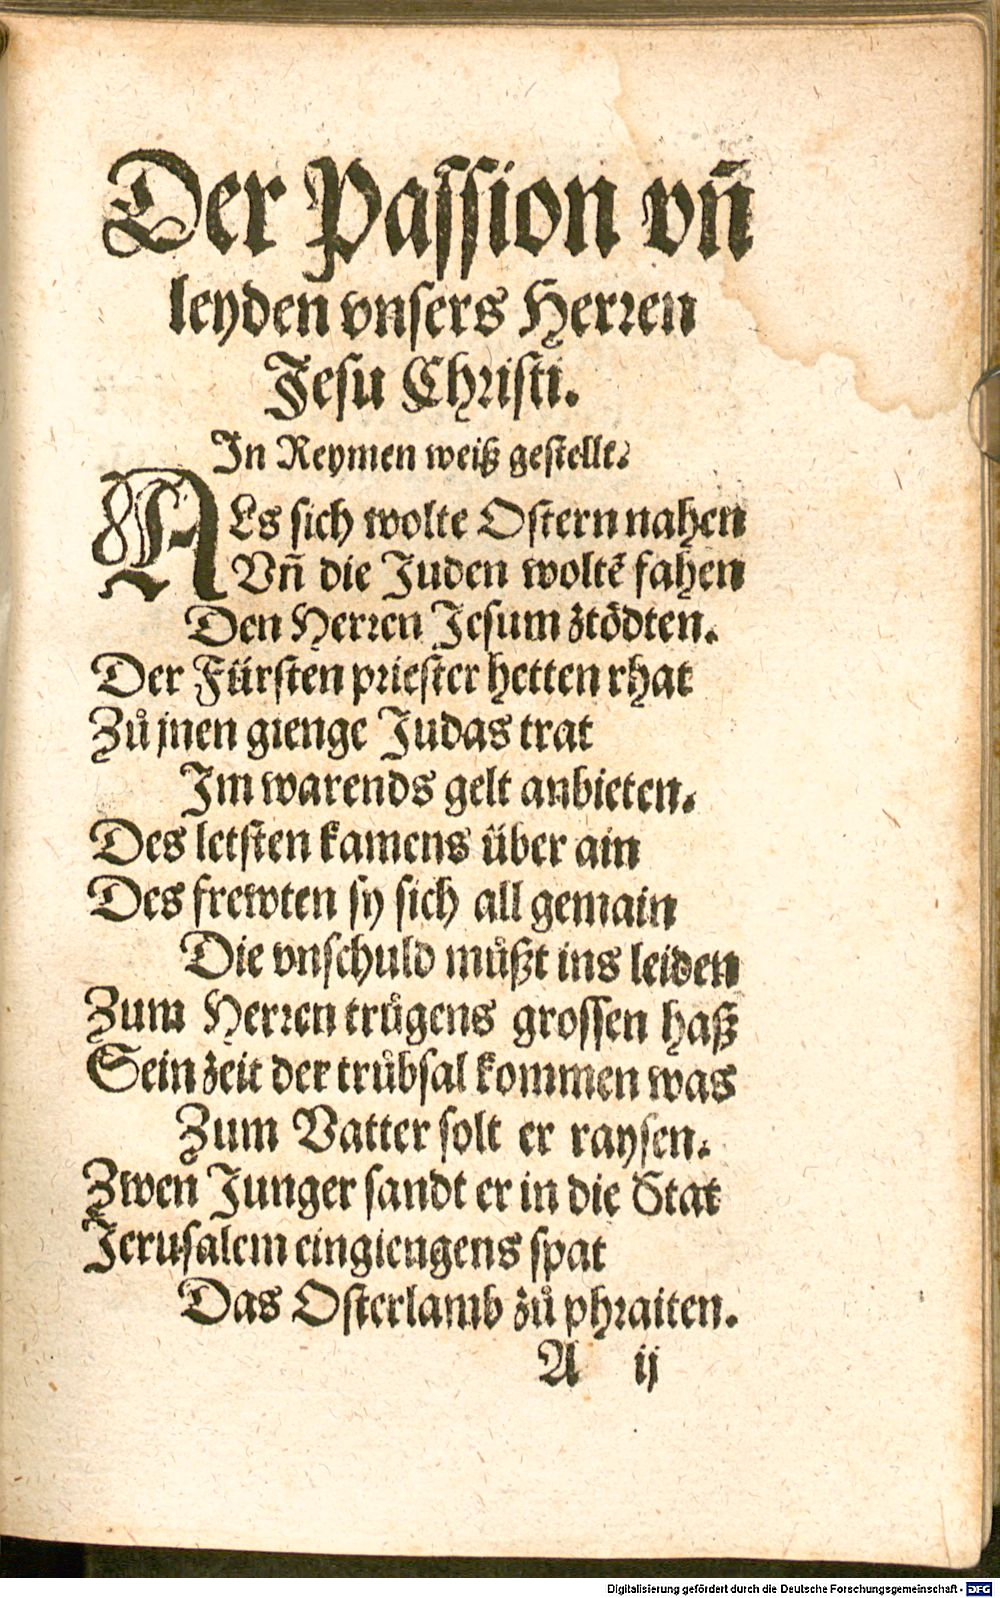 Der Passion vñ
leyden vnsers Herren
Jesu Christi.
In Reymen weiß gestellt.
ALs sich wolte Ostern nahen
Vñ die Juden woltẽ fahen
Den Herren Jesum ztödten.
Der Fürsten priester hetten rhat
Zů jnen gienge Judas trat
Im warends gelt anbieten.
Des letsten kamens über ain
Des frewten sy sich all gemain
Die vnschuld můßt ins leiden
Zum Herren trůgens grossen haß
Sein zeit der trůbsal kommen was
Zum Vatter solt er raysen.
Zwen Junger sandt er in die Stat
Jerusalem eingiengens spat
Das Osterlamb zů phraiten.
A ij
Digitalisierung gefördert durch die Deutsche Forschungsgemeinschaft - DFG